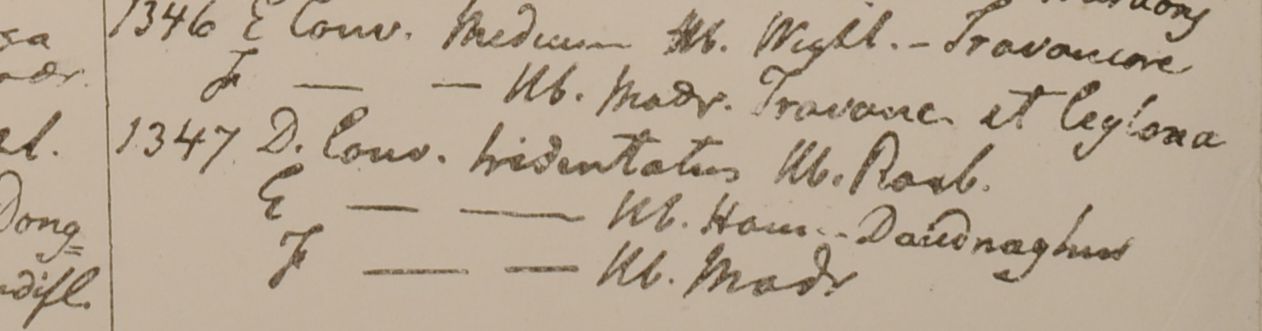 1346 E Conv. Medium Hb. Wight. - Travancore
F — — Hb. Madr. Travanc. et Ceylona
1347 D. Conv. tridentatus Hb. Roxb.
E — — Hb. Ham. - Daudnaghur
F — — Hb. Madr